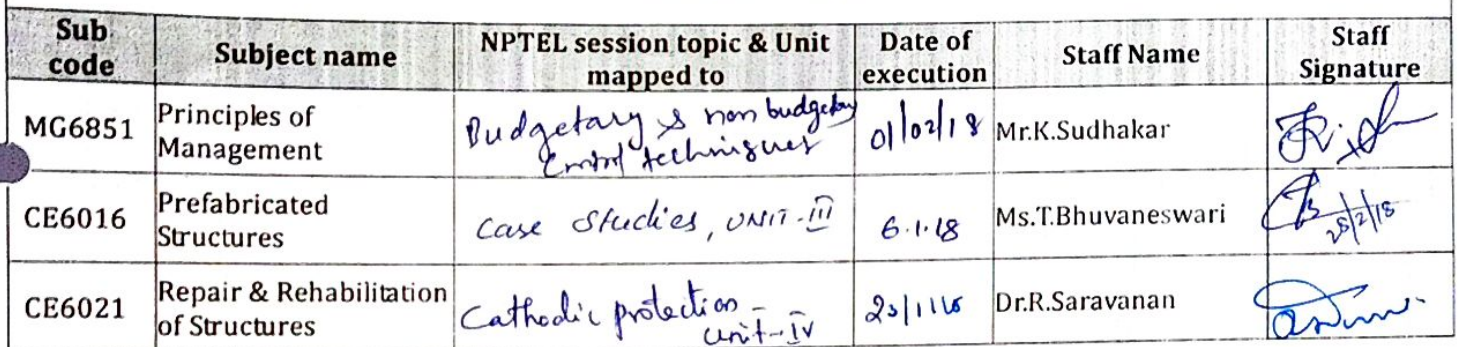 Sub code Subject name NPTEL session topic & Unit mapped to Date of execution Staff Name Staff Signature
MG6851 Principles of Management Budgetary & non budgetary control techniques 01/02/18 Mr.K.Sudhakar
CE6016 Prefabricated Structures Case Studies, UNIT-III 6.1.18 Ms.T.Bhuvaneswari 28/2/18
CE6021 Repair & Rehabilitation of Structures Cathodic protection - Unit-IV Dr.R.Saravanan